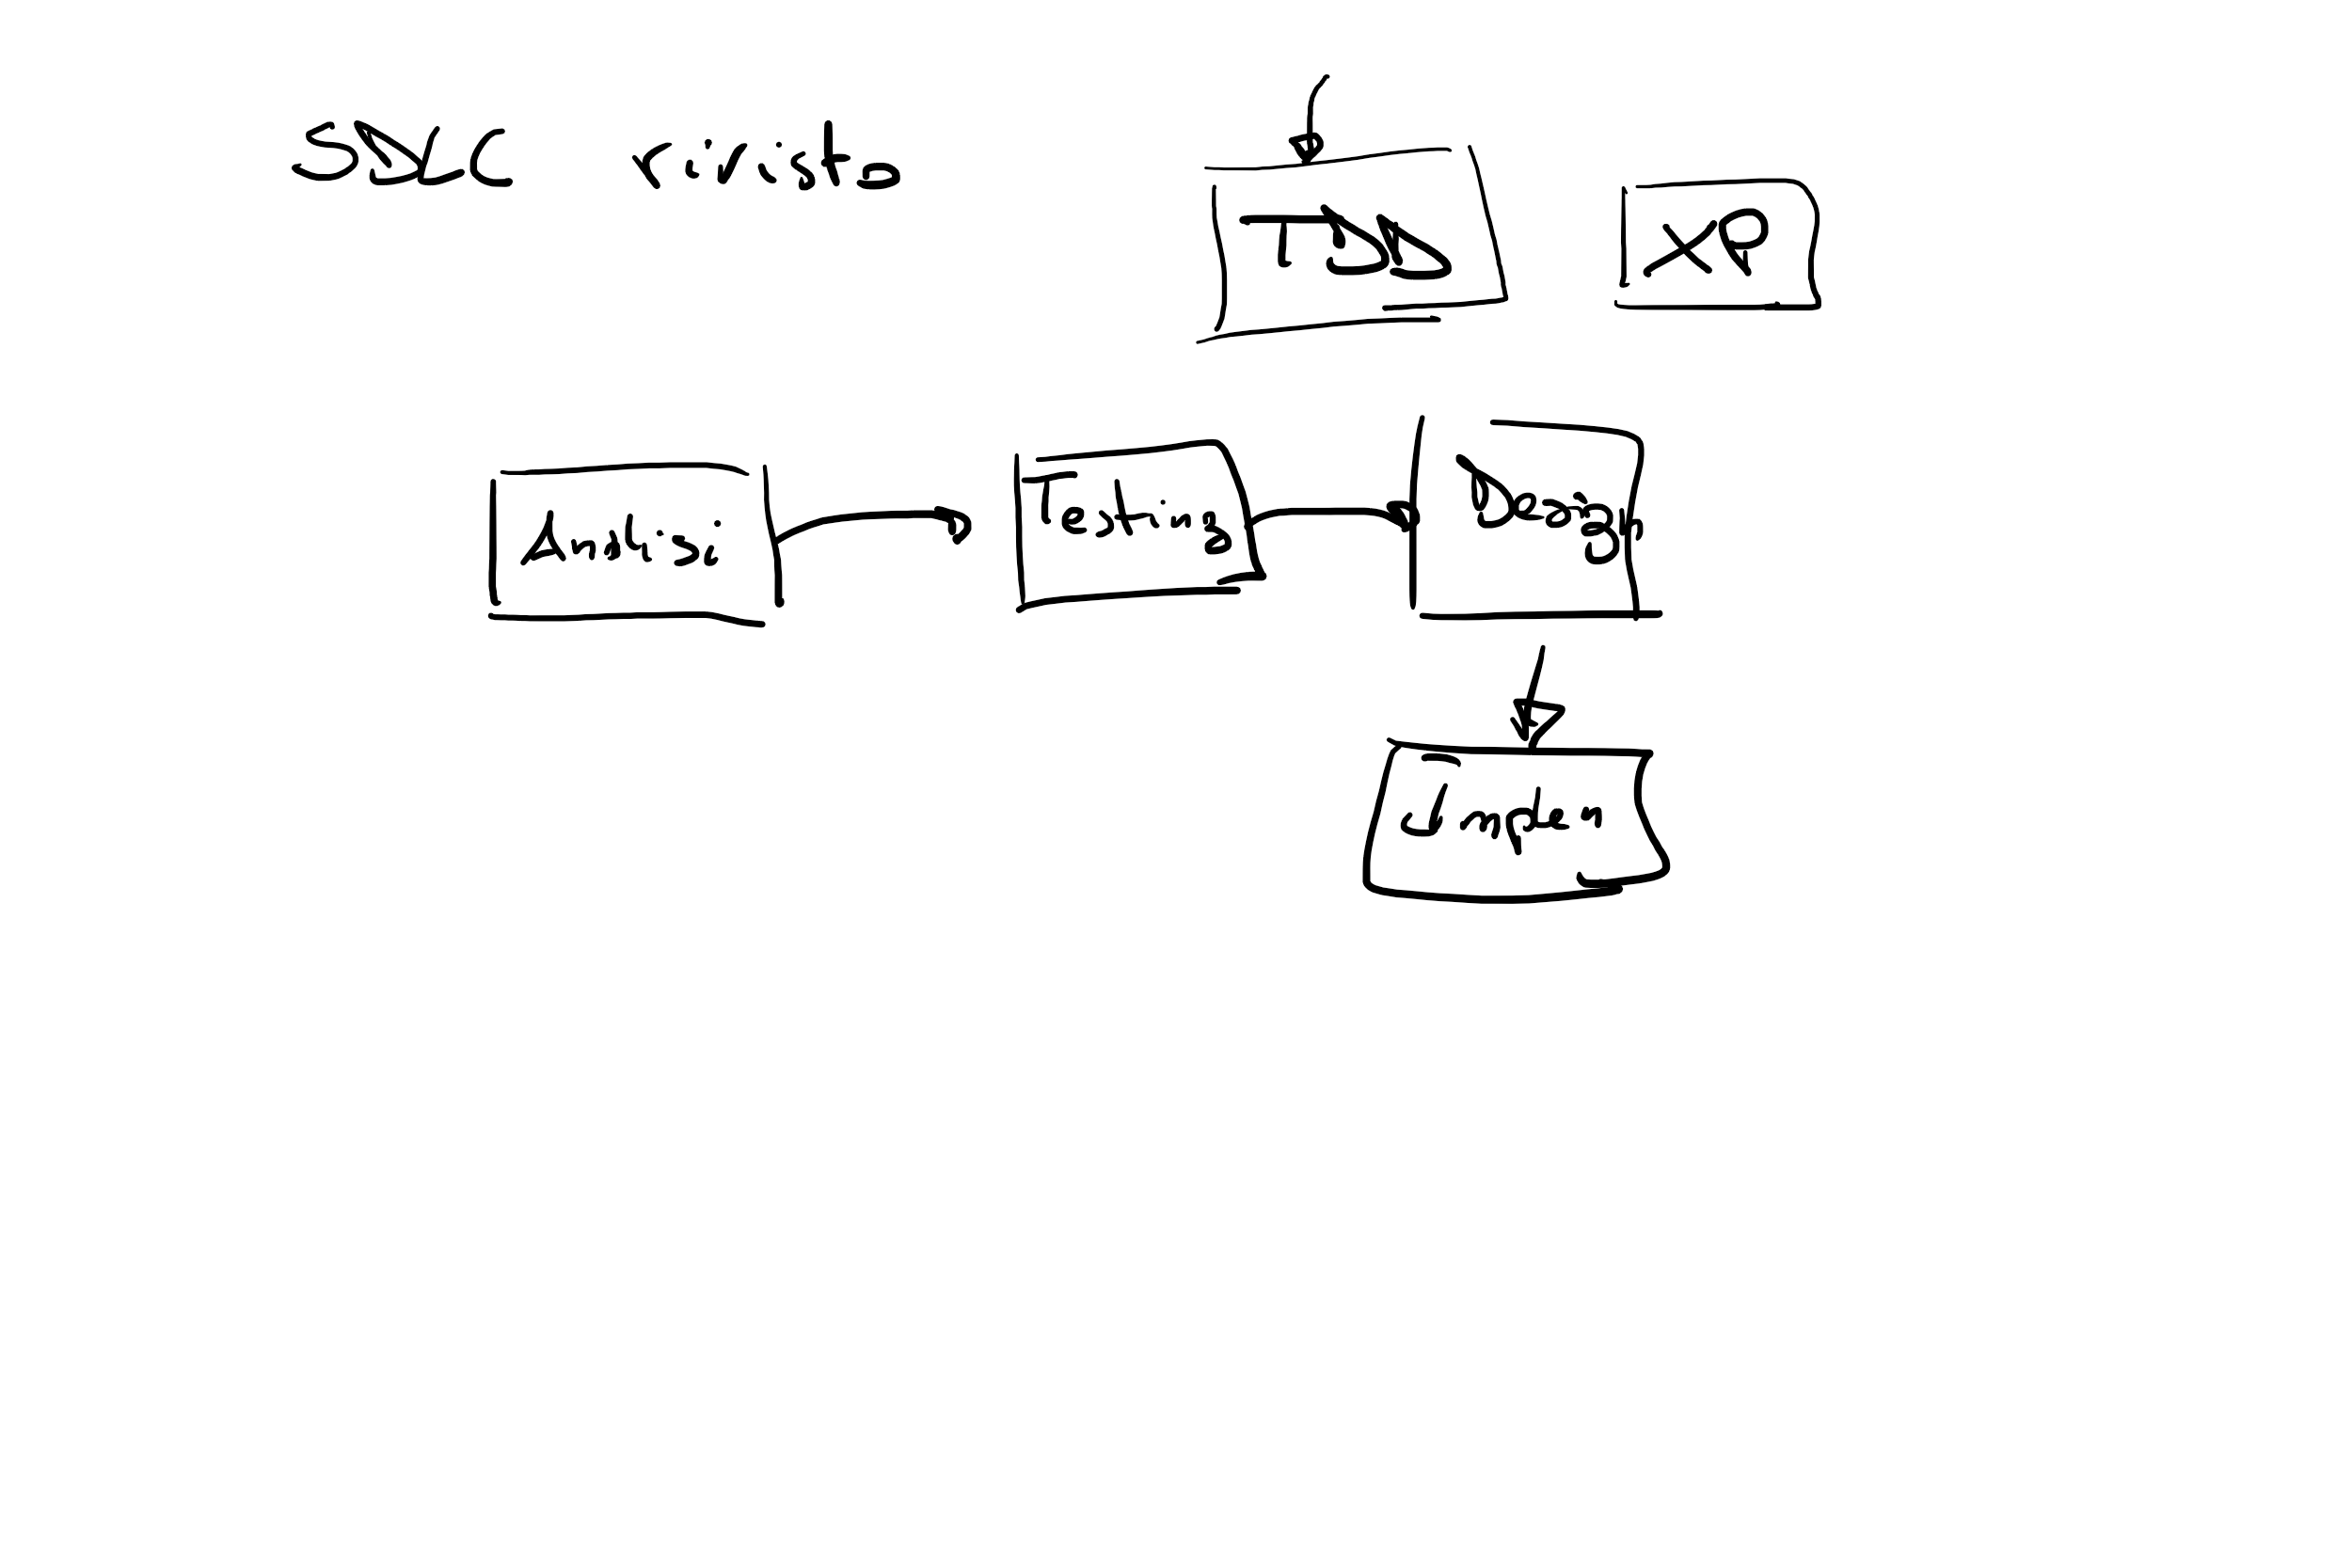 SDLC rivisto
TDD
XP
Analisi
Testing
Design
Implem